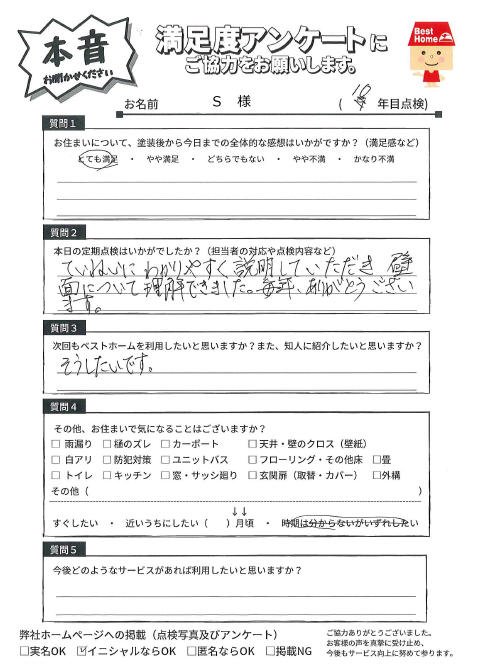 本音
お聞かせください
満足度アンケートに
ご協力をお願いします。
Best
Home
お名前 S 様 ( 10 年目点検)
質問1
お住まいについて、塗装後から今日までの全体的な感想はいかがですか?(満足感など)
とても満足 ・ やや満足 ・ どちらでもない ・ やや不満 ・ かなり不満
質問2
本日の定期点検はいかがでしたか?(担当者の対応や点検内容など)
ていねいにわかりやすく説明していただき 壁
面について理解できました。毎年、ありがとうござい
ます。
質問3
次回もベストホームを利用したいと思いますか?また、知人に紹介したいと思いますか?
そうしたいです。
質問4
その他、お住まいで気になることはございますか?
□ 雨漏り □ 樋のズレ □ カーポート □ 天井・壁のクロス(壁紙)
□ 白アリ □ 防犯対策 □ ユニットバス □ フローリング・その他床 □畳
□ トイレ □ キッチン □ 窓・サッシ廻り □ 玄関扉(取替・カバー) □外構
その他( )
↓↓
すぐしたい ・ 近いうちにしたい( )月頃 ・ 時期は分からないがいずれしたい
質問5
今後どのようなサービスがあれば利用したいと思いますか?
弊社ホームページへの掲載(点検写真及びアンケート)
□実名OK ☑イニシャルならOK □匿名ならOK □掲載NG
ご協力ありがとうございました。
お客様の声を真摯に受け止め、
今後もサービス向上に努めて参ります。